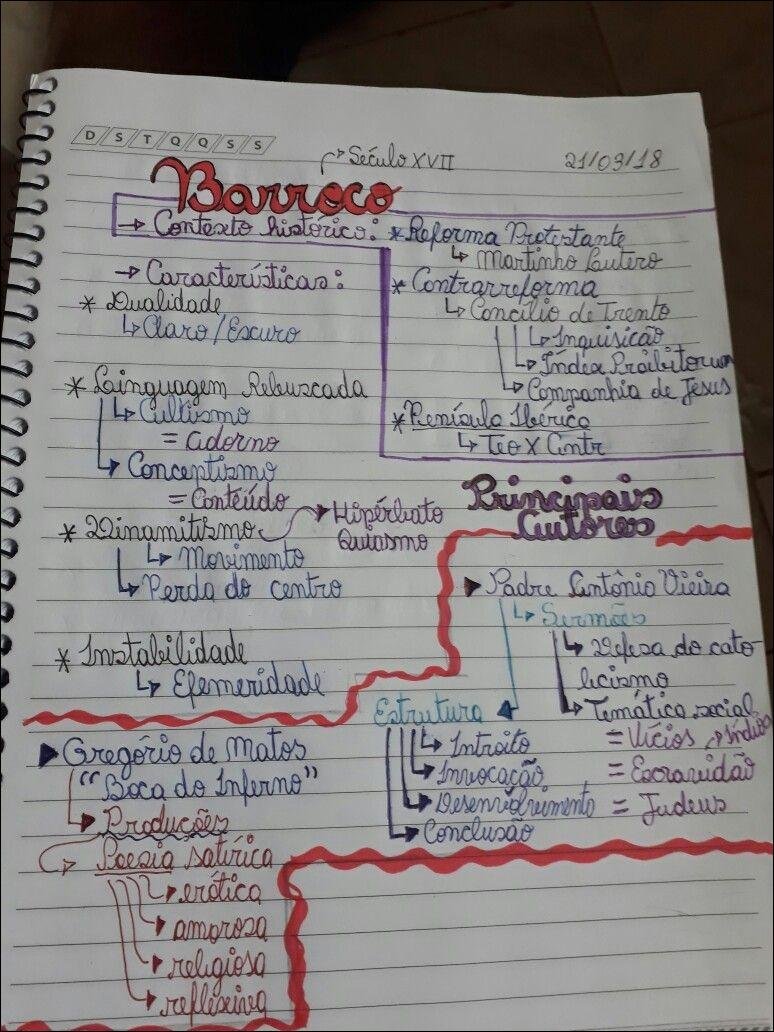 D S T Q Q S S
→ Século XVII
21/03/18
Barroco
→ Contexto histórico:
* Reforma Protestante
↳ Martinho Lutero
* Contrarreforma
↳ Concílio de Trento
↳ Inquisição
↳ Índex Proibitorum
↳ Companhia de Jesus
* Península Ibérica
↳ Teo X Antr
→ Características:
* Dualidade
↳ Claro / Escuro
* Linguagem Rebuscada
↳ Cultismo
= adorno
↳ Conceptismo
= Contéúdo
* Dinamitismo → Hipérbato
Quiasmo
↳ Movimento
↳ Perda do centro
* Instabilidade
↳ Efemeridade
Principais
Autores
▶ Padre Antônio Vieira
↳ Sermões
↳ Defesa do cato-
licismo
↳ Temática social
= Vícios → índio
= Escravidão
= Judeus
Estrutura
↳ Introito
↳ Invocação
↳ Desenvolvimento
↳ Conclusão
▶ Gregório de Matos
"Boca do Inferno"
↳ Produções
→ Poesia satírica
→ erótica
→ amorosa
→ religiosa
→ reflexiva